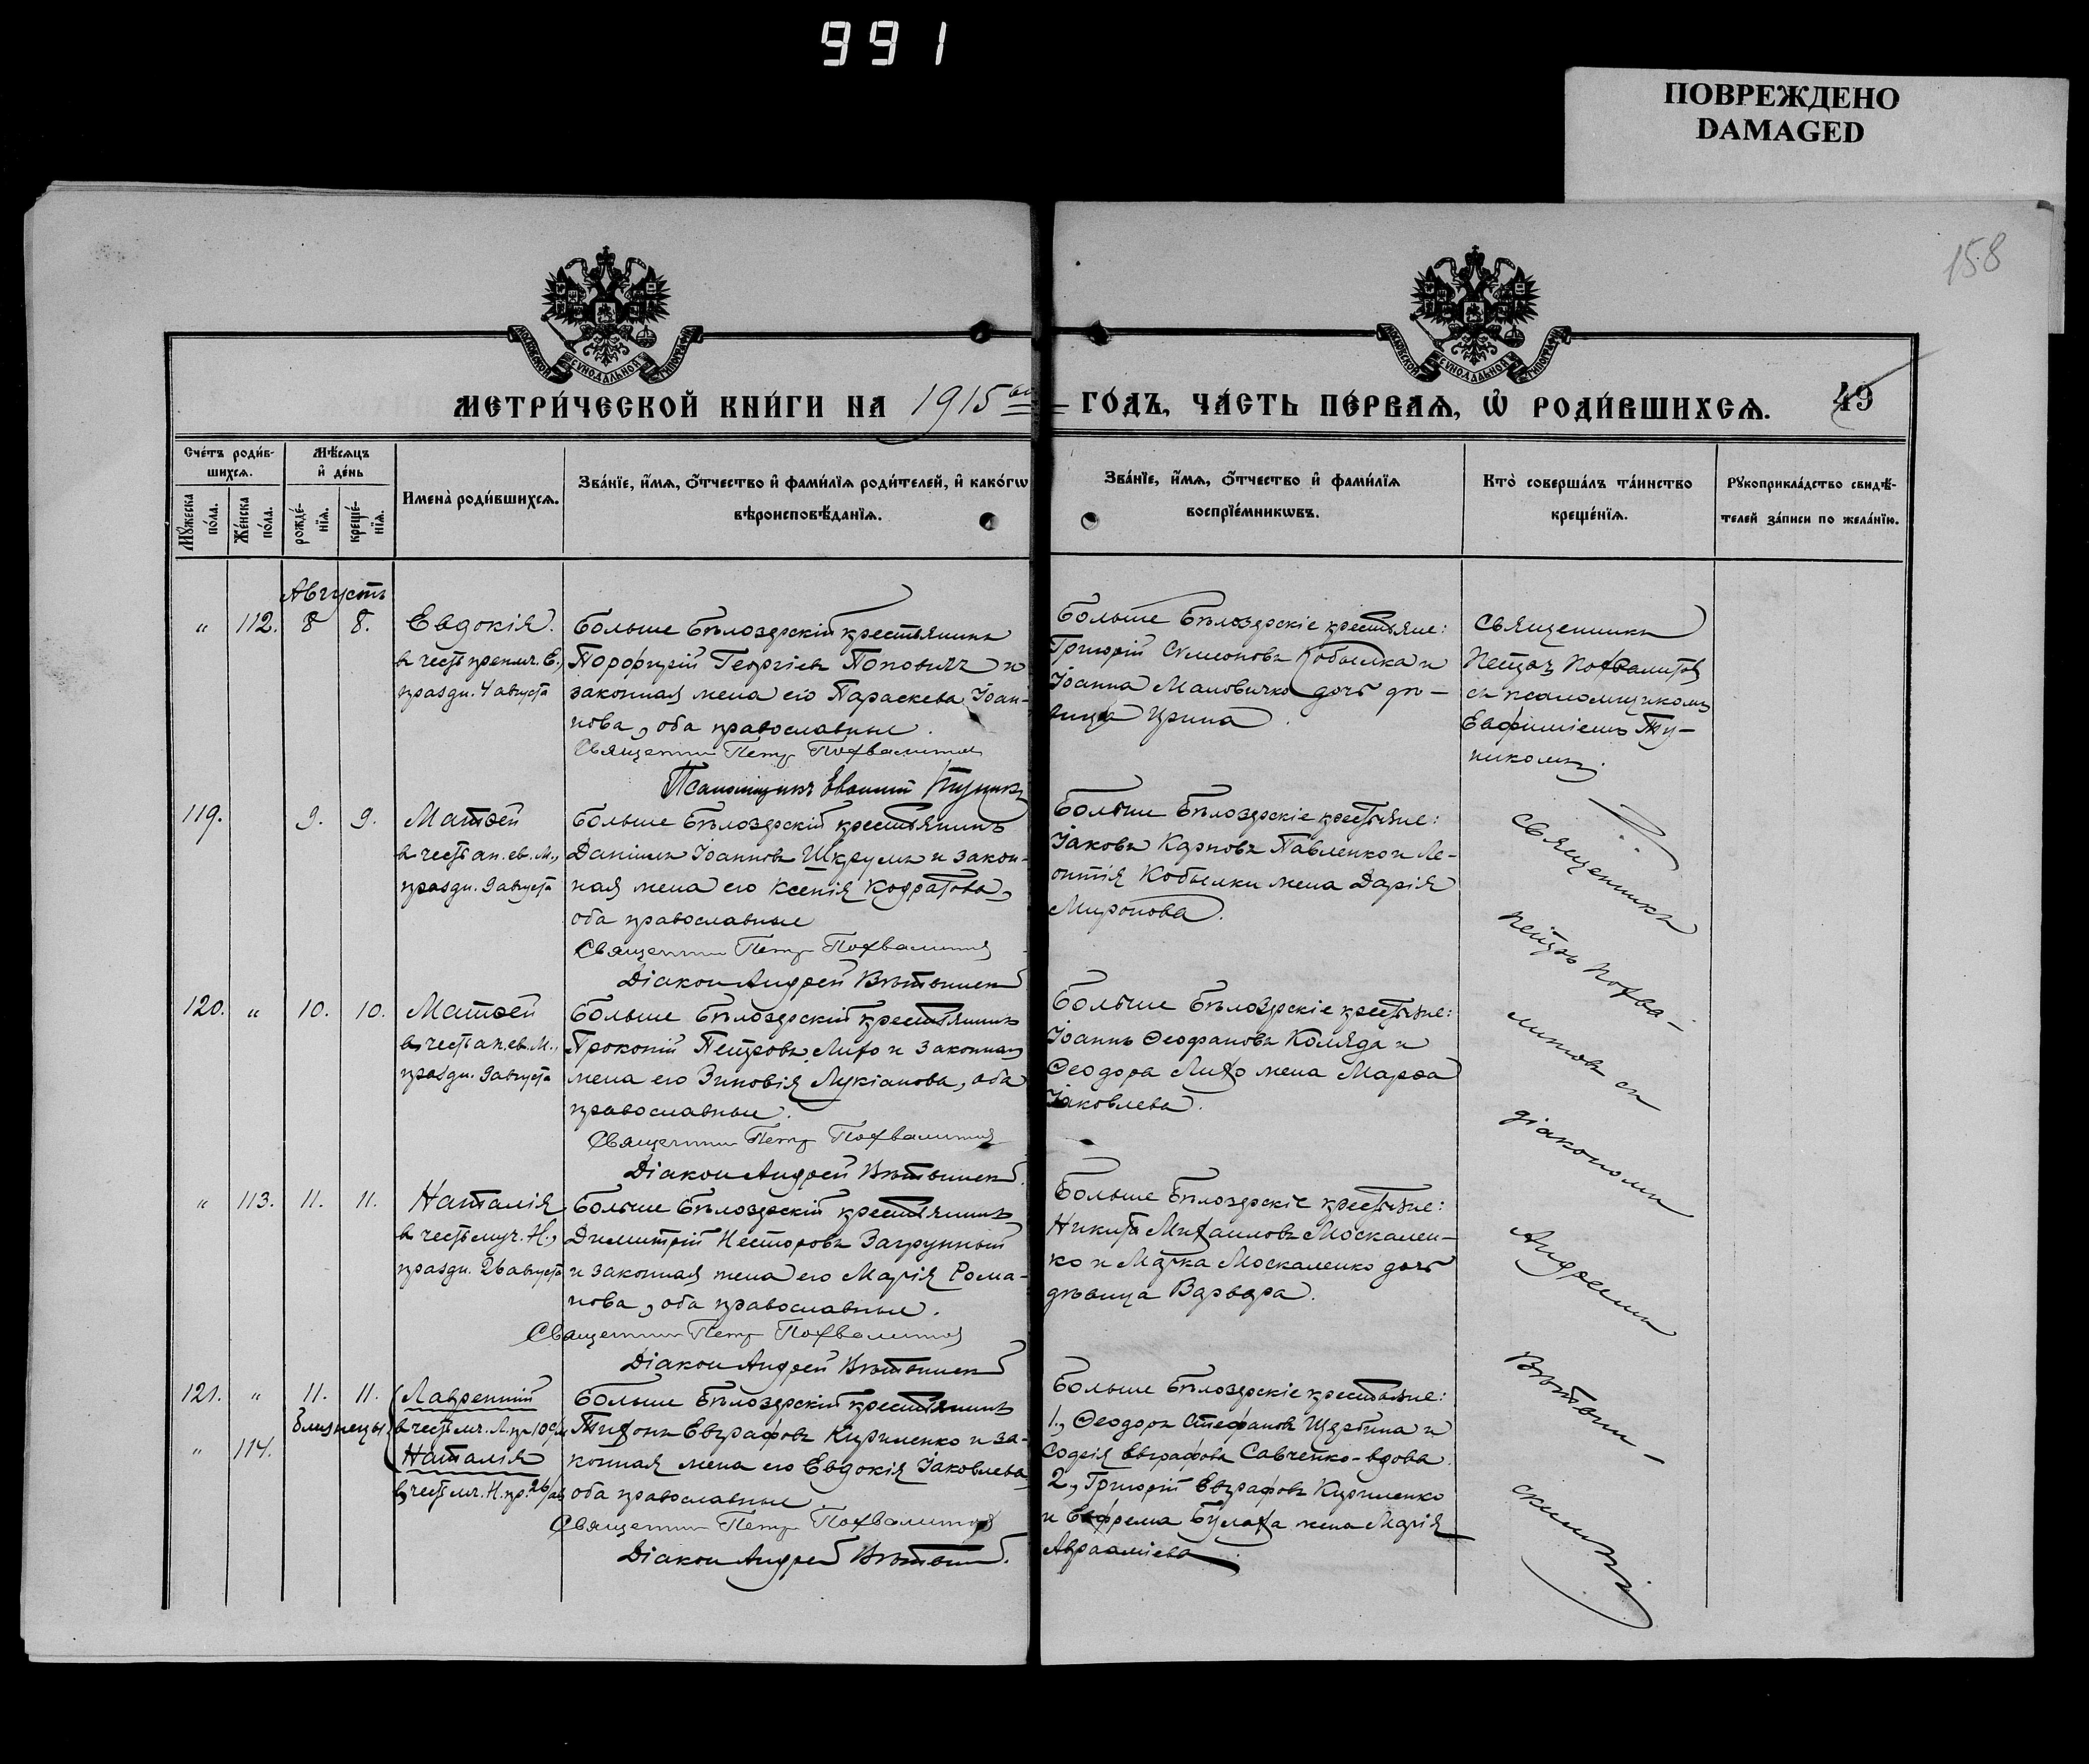 991
ПОВРЕЖДЕНО
DAMAGED
158
МОСКОВСКОЙ СѴНОДАЛЬНОЙ ТИПОГРАФІИ
МОСКОВСКОЙ СѴНОДАЛЬНОЙ ТИПОГРАФІИ
МЕТРИ́ЧЕСКОЙ КНИ́ГИ НА 1915ый ГО́ДЪ, ЧА́СТЬ ПЕ́РВАѦ, Ѽ РОДИ́ВШИХСѦ.
49
Сче́тъ роди́в-
шихсѧ.
Мꙋ́жеска
по́ла.
Же́нска
по́ла.
Мѣ́сѧцъ
и҆ де́нь
рожде́-
нїѧ.
креще́-
нїѧ.
Имена̀ роди́вшихсѧ.
Зва́нїе, и҆́мѧ, ѻ҆́тчество и҆ фами́лїѧ роди́телей, и҆ како́гѡ
вѣроисповѣ́данїѧ.
Зва́нїе, и҆́мѧ, ѻ҆́тчество и҆ фами́лїѧ
воспрїе́мникѡвъ.
Кто̀ соверша́лъ та́инство
креще́нїѧ.
Рꙋкоприкла́дство свидѣ́-
телей за́писи по жела́нїю.
Августъ
" 112. 8 8. Евдокія.
в честь препмч. Е.,
праздн. 4 августа
Больше Бѣлозерскій крестьянинъ
Порофирій Георгіевъ Поповичъ и
законная жена его Параскева Іоан-
нова, оба православные.
Священникъ Петръ Похвалитовъ
Псаломщикъ Евфимій Тупикъ
Больше Бѣлозерскіе крестьяне:
Григорій Сѵмеоновъ Кобылка и
Іоанна Мановичко дочь дѣ-
вица Ирина.
Священникъ
Петръ Похвалитовъ
съ псаломщикомъ
Евфиміемъ Ту-
пикомъ.
119. 9. 9. Матѳей
в честь ап. ев. М.,
праздн. 9 августа
Больше Бѣлозерскій крестьянинъ
Даніилъ Іоанновъ Шкрумъ и закон-
ная жена его Ксенія Кодратова,
оба православные
Священникъ Петръ Похвалитовъ
Діаконъ Андрей Вѣтвинскій
Больше Бѣлозерскіе крестьяне:
Іаковъ Карповъ Павленко и Ле-
онтія Кобылки жена Дарія
Миронова.
120. " 10. 10. Матѳей
в честь ап. ев. М.,
праздн. 9 августа
Больше Бѣлозерскій крестьянинъ
Прокопій Петровъ Лихо и законная
жена его Зиновія Лукіанова, оба
православные.
Священникъ Петръ Похвалитовъ
Діаконъ Андрей Вѣтвинскій
Больше Бѣлозерскіе крестьяне:
Іоаннъ Ѳеофановъ Коляда и
Ѳеодора Лихо жена Марѳа
Іаковлева.
" 113. 11. 11. Наталія
в честь муч. Н.,
праздн. 26 августа
Больше Бѣлозерскій крестьянинъ
Димитрій Несторовъ Загрунный
и законная жена его Марія Рома-
нова, оба православные.
Священникъ Петръ Похвалитовъ
Діаконъ Андрей Вѣтвинскій
Больше Бѣлозерскіе крестьяне:
Никита Михаиловъ Москален-
ко и Марка Москаленко дочь
дѣвица Варвара.
121. " 11. 11. Лаврентій
близнецы в честь мч. Л. пр. 10 ав
" 114. Наталія
в честь мч. Н. пр. 26/ав
Больше Бѣлозерскій крестьянинъ
Тихонъ Евграфовъ Кириленко и за-
конная жена его Евдокія Іаковлева,
оба православные
Священникъ Петръ Похвалитовъ
Діаконъ Андрей Вѣтвинскій.
Больше Бѣлозерскіе крестьяне:
1, Ѳеодоръ Стефановъ Щербина и
Евграфова Савченко - вдова.
2, Григорій Евграфовъ Кириленко
и Ефрема Булаха жена Марія
Авраамiева.
Священникъ
Петръ Похва-
литовъ съ
діакономъ
Андреемъ
Вѣтвин-
скимъ.